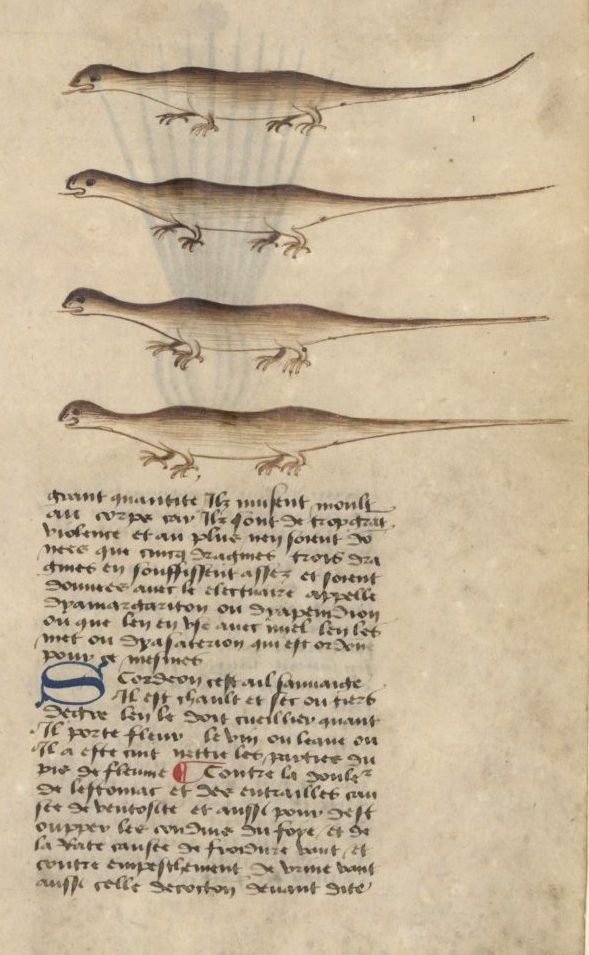 grant quantite Ilz nuisent moult
au corps car Ilz sont de trop grāt
violence et au plus nen soient do
nees que cincq dragmes trois dra
gmes en souffissent assez et soient
donnees auec le electuaire appelle
dyamargariton ou dyapendion
ou que len en vse auec miel len les
met ou dyasaterion qui est ordone
pour ce mesmes
Scordeon cest ail sauuaige
Il est chault et sec ou tiers
degre len le doit cueillier quant
Il porte fleur le vin ou leaue ou
Il a este cuit nettie les parties du
pis de fleume ¶ Contre la douler
de lestomac et des entrailles cau
see de ventosite et aussi pour dest
oupper les conduis du foye et de
la rate causee de froidure vault et
contre empeschement de vrine vault
aussi celle decoction deuant dite